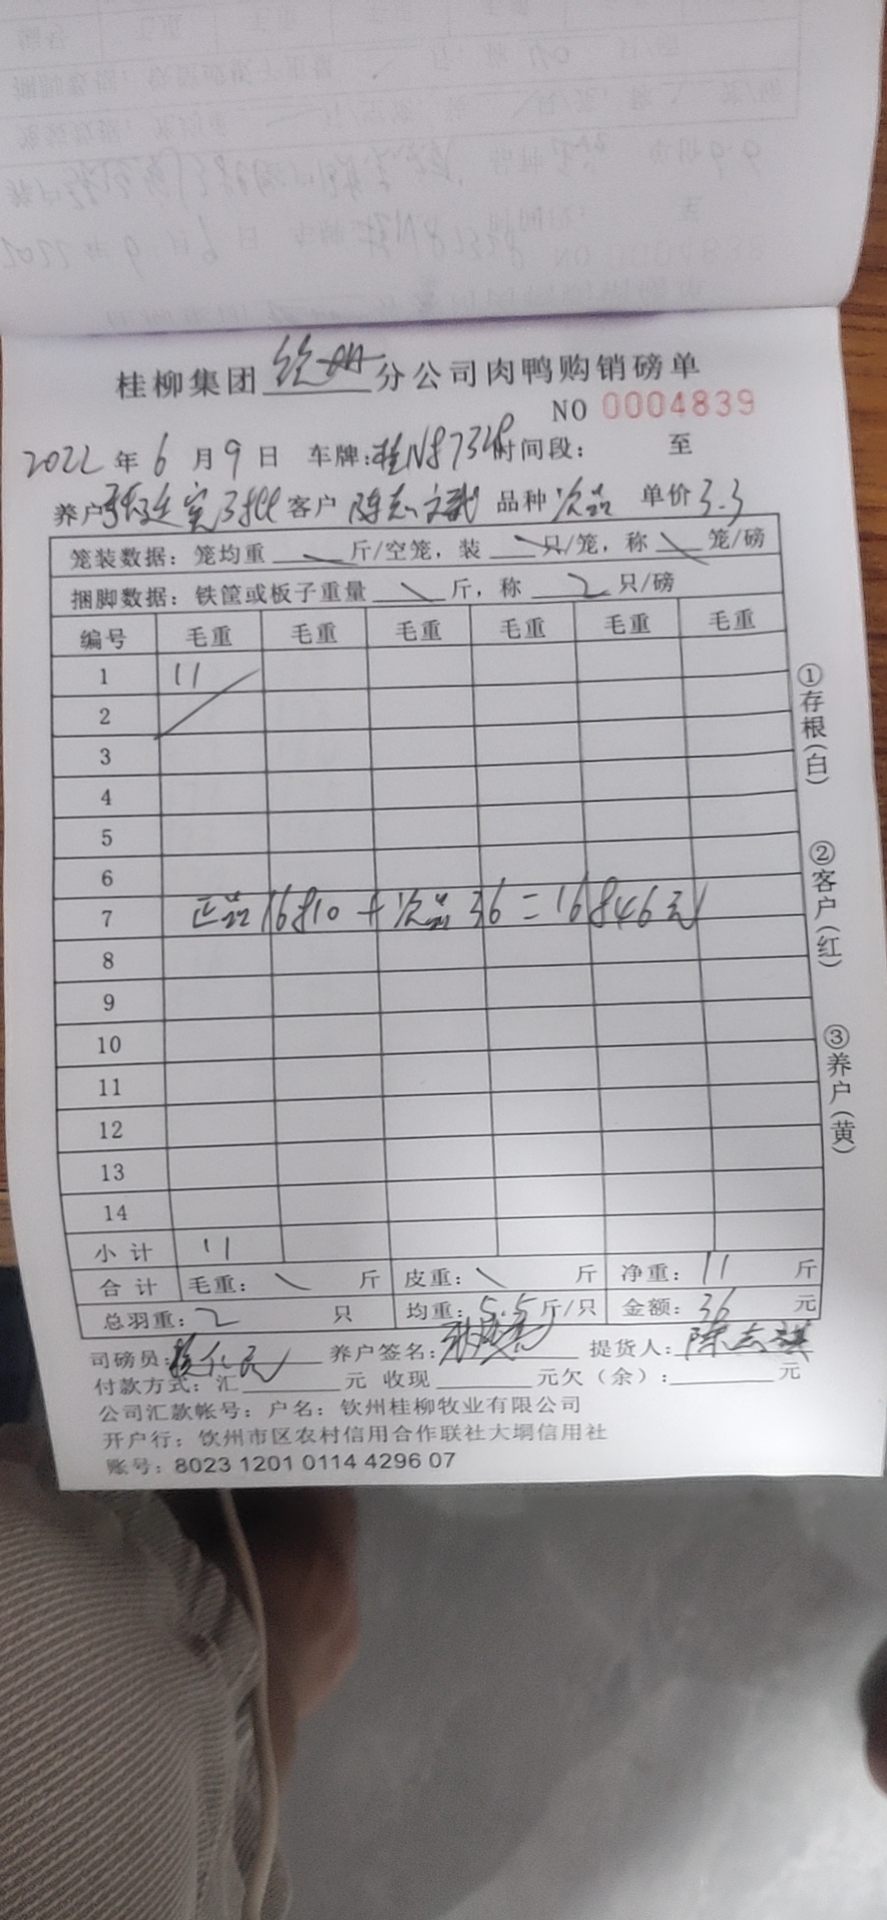 桂柳集团钦州分公司肉鸭购销磅单
NO 0004839
2022年6月9日 车牌:桂N87328时间段: 至
养户 客户 陈志 品种 次品 单价 3.3
笼装数据：笼均重 斤/空笼，装 只/笼，称 笼/磅
捆脚数据：铁筐或板子重量 斤，称 2 只/磅
编号 毛重 毛重 毛重 毛重 毛重 毛重
1 11
2
3
4
5
6
7 正品16810+次品36=16846元
8
9
10
11
12
13
14
小计 11
合计 毛重： 斤 皮重： 斤 净重：11 斤
总羽重：2 只 均重：5.5斤/只 金额：36 元
司磅员： 养户签名： 提货人：陈志
付款方式：汇 元 收现 元欠（余）： 元
公司汇款帐号：户名：钦州桂柳牧业有限公司
开户行：钦州市区农村信用合作联社大垌信用社
账号：8023 1201 0114 4296 07
①存根(白)
②客户(红)
③养户(黄)